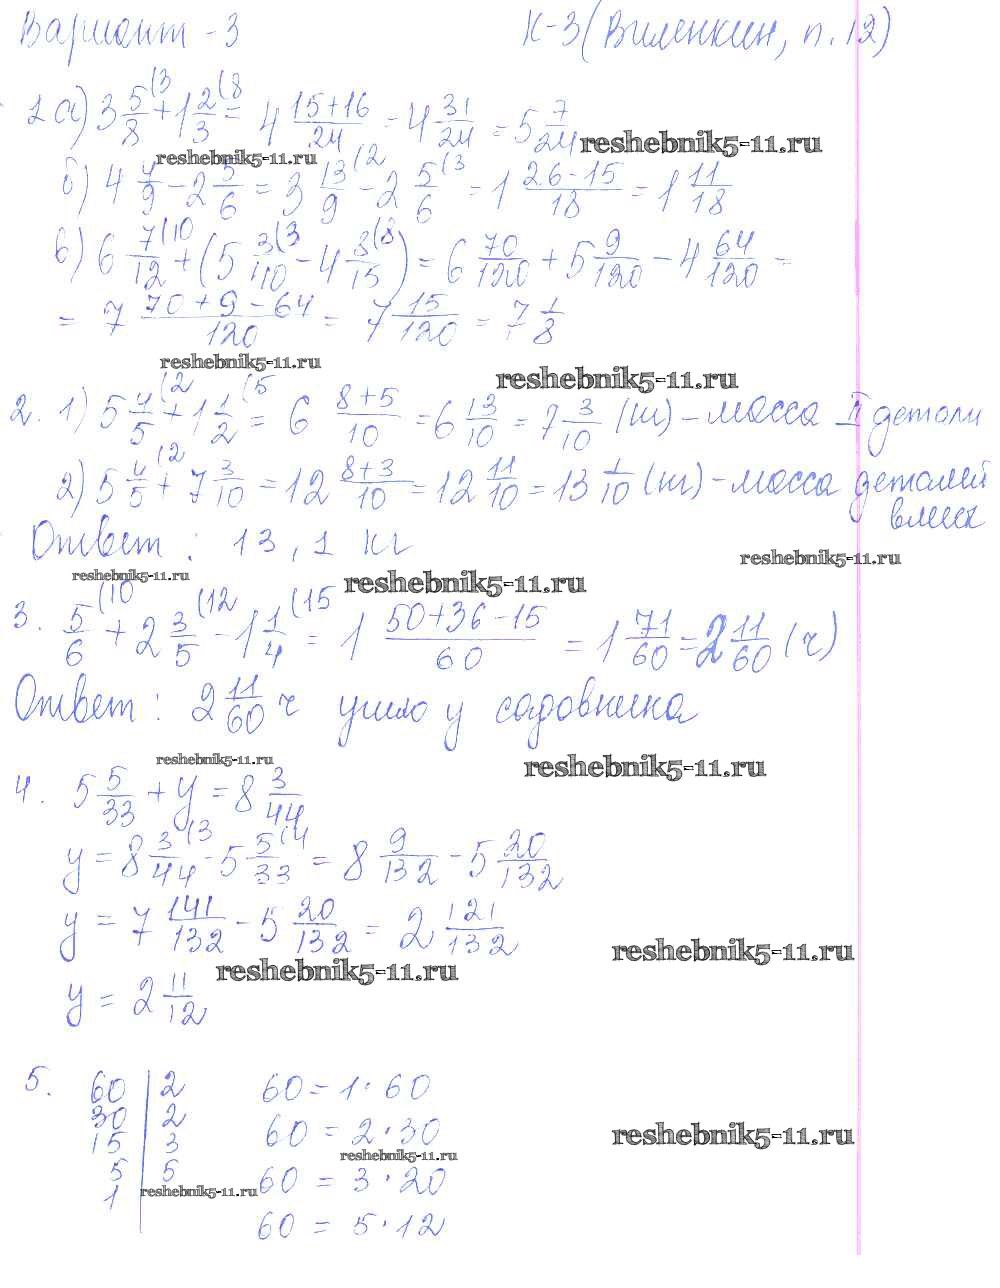 Вариант - 3 К-3 (Виленкин, п. 12)
1 а) 3 5/8 (3 + 1 2/3 (8 = 4 (15+16)/24 = 4 31/24 = 5 7/24
reshebnik5-11.ru
reshebnik5-11.ru
б) 4 4/9 - 2 5/6 = 3 13/9 (2 - 2 5/6 (3 = 1 (26-15)/18 = 1 11/18
в) 6 7/12 (10 + (5 3/40 (3 - 4 8/15 (8) = 6 70/120 + 5 9/120 - 4 64/120 =
= 7 (70+9-64)/120 = 7 15/120 = 7 1/8
reshebnik5-11.ru
reshebnik5-11.ru
2. 1) 5 4/5 (2 + 1 1/2 (5 = 6 (8+5)/10 = 6 13/10 = 7 3/10 (кг) - масса II детали
2) 5 4/5 (2 + 7 3/10 = 12 (8+3)/10 = 12 11/10 = 13 1/10 (кг) - масса деталей
вмест
Ответ: 13,1 кг
reshebnik5-11.ru
reshebnik5-11.ru
reshebnik5-11.ru
3. 5/6 (10 + 2 3/5 (12 - 1 1/4 (15 = 1 (50+36-15)/60 = 1 71/60 = 2 11/60 (ч)
Ответ: 2 11/60 ч ушло у садовника
reshebnik5-11.ru
reshebnik5-11.ru
4. 5 5/33 + y = 8 3/44
y = 8 3/44 (3 - 5 5/33 (4 = 8 9/132 - 5 20/132
y = 7 141/132 - 5 20/132 = 2 121/132
reshebnik5-11.ru
reshebnik5-11.ru
y = 2 11/12
5. 60 | 2 60 = 1 · 60
30 | 2 60 = 2 · 30
15 | 3
reshebnik5-11.ru
reshebnik5-11.ru
5 | 5 60 = 3 · 20
1
reshebnik5-11.ru
60 = 5 · 12